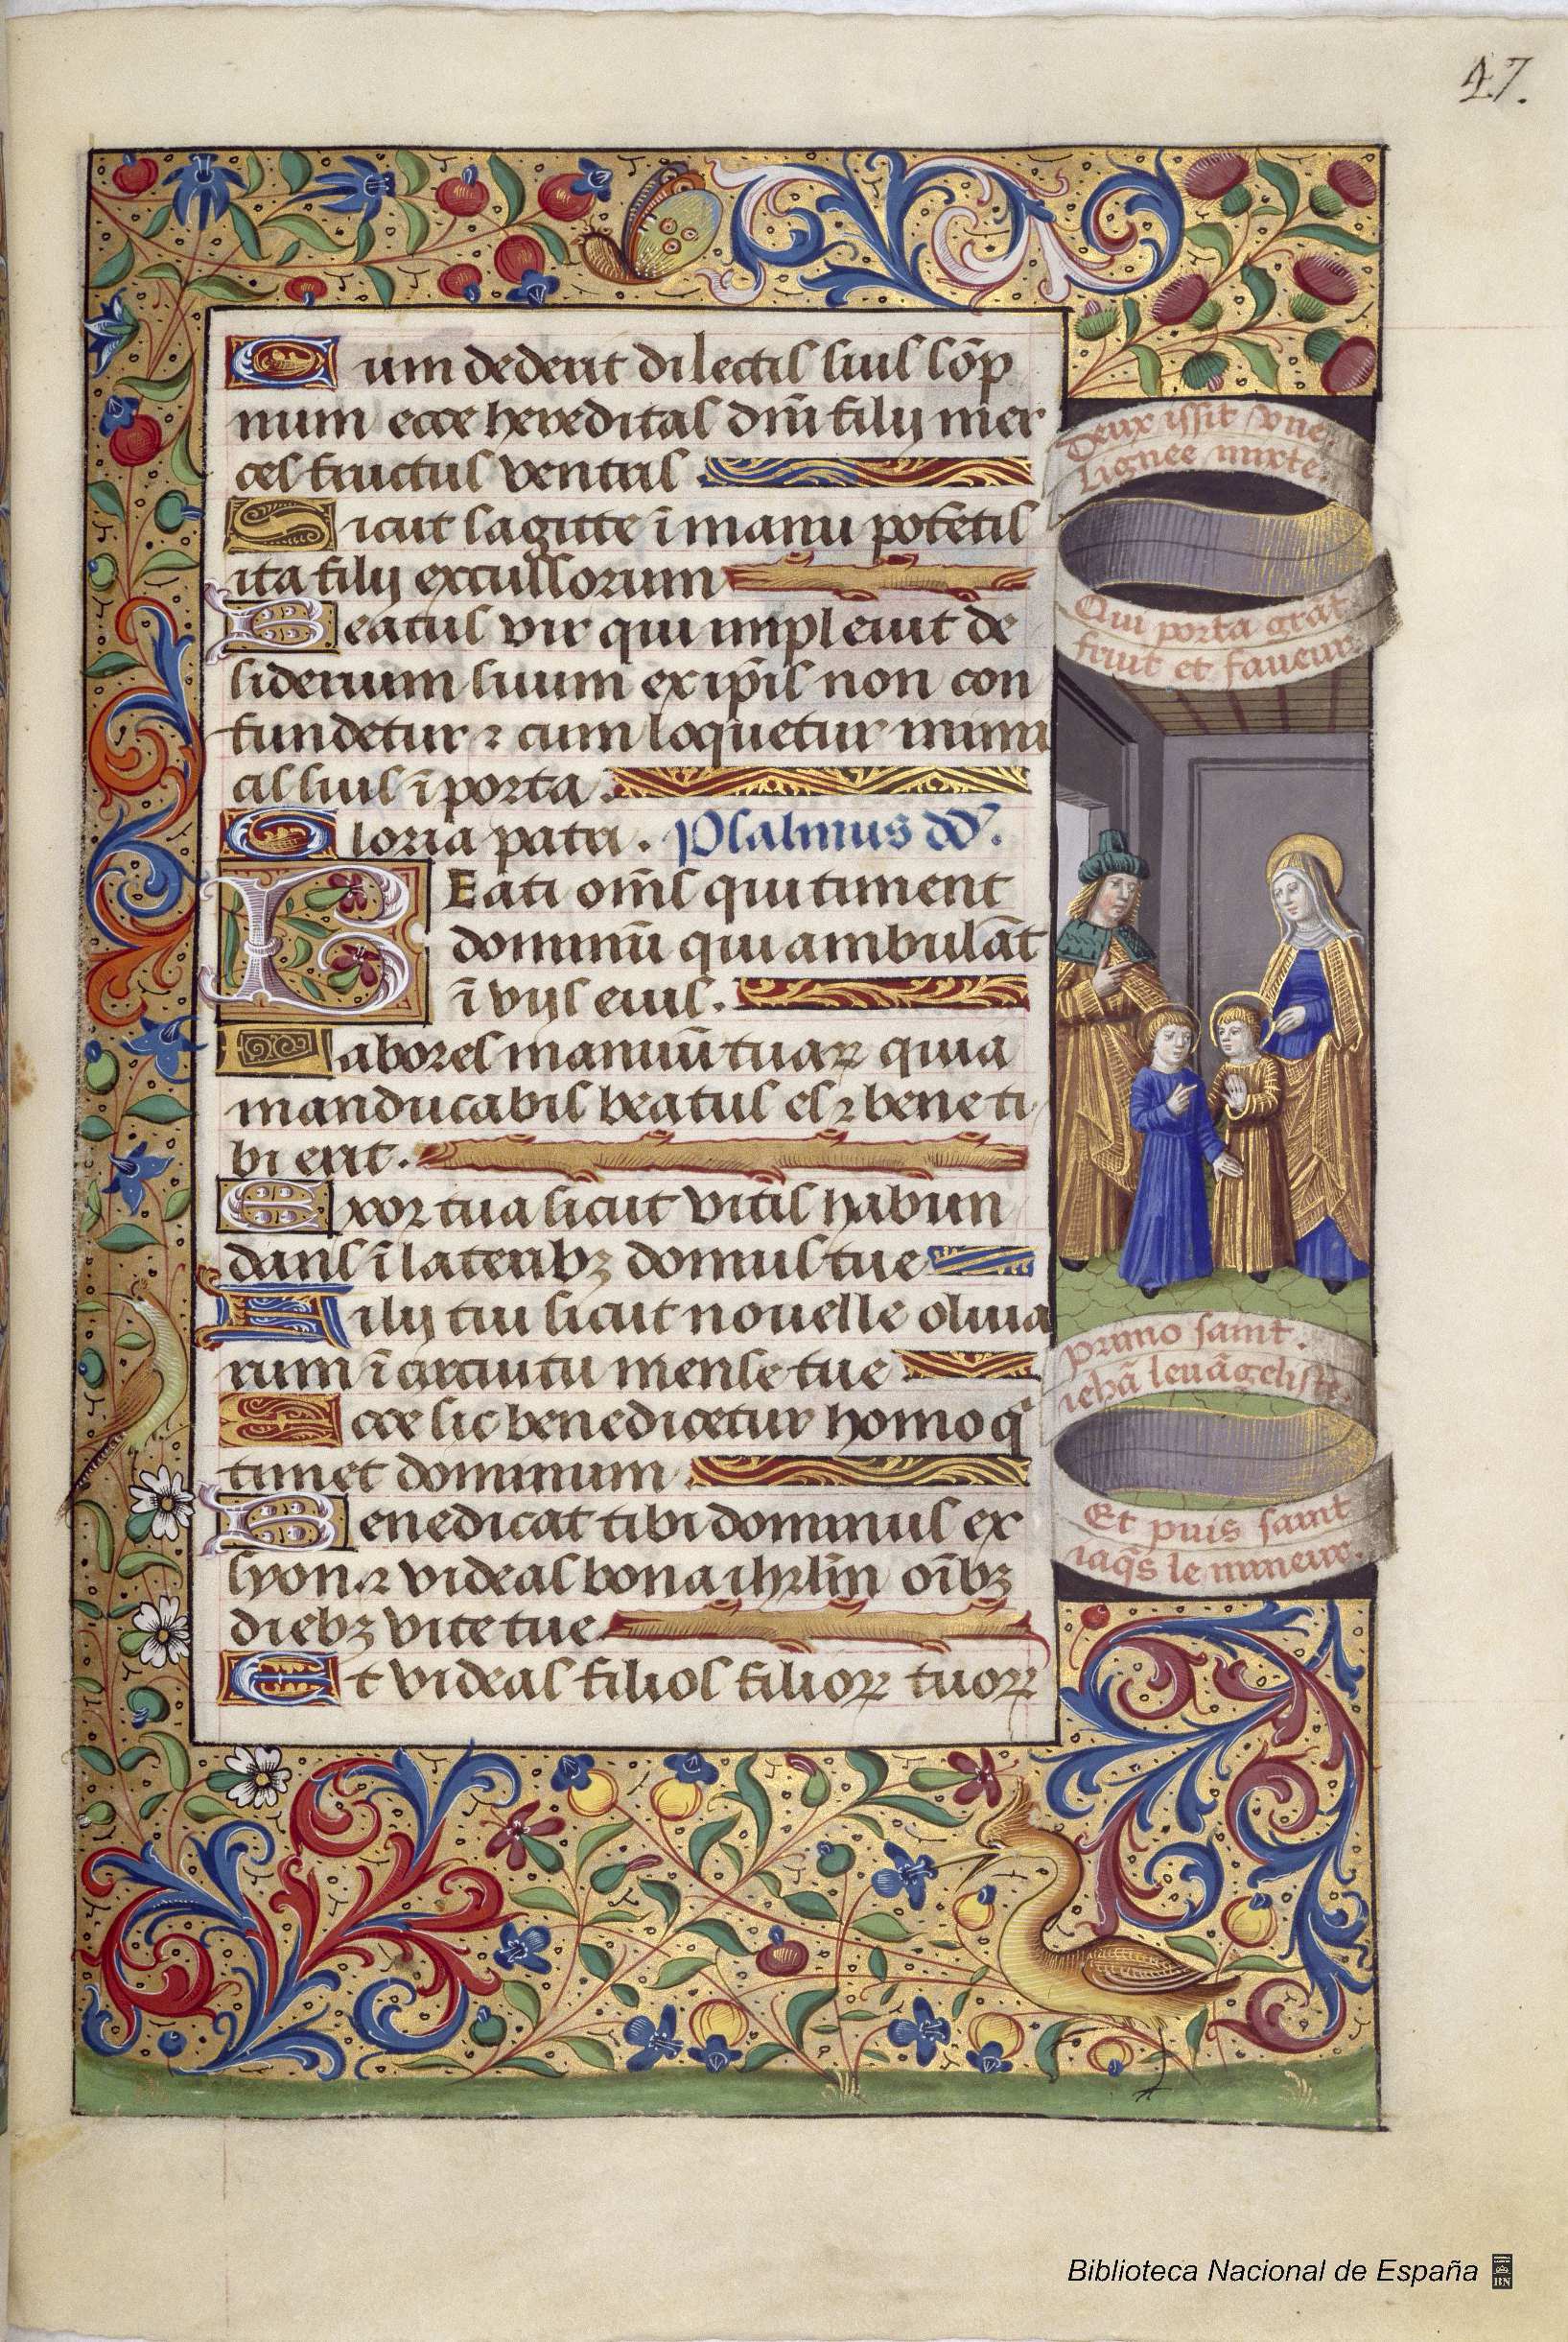 47.
Cum dederit dilectis suis sōp
num ecce hereditas dn̄i filij mer
ces fructus ventris
Sicut sagitte ī manu potētis
ita filij excussorum
Beatus vir qui impleuit de
siderium suum ex ip̄is non con
fundetur ⁊ cum loquetur inimi
cis suis ī porta.
Gloria patri. Psalmus dd̄.
BEati om̄s qui timent
dominū qui ambulāt
ī vijs eius.
Labores manuū tuaꝝ quia
manducabis beatus es ⁊ bene ti
bi erit.
Uxor tua sicut vitis habun
dans ī lateribꝫ domus tue
Filij tui sicut nouelle oliua
rum ī circuitu mense tue
Ecce sic benedicetur homo qͥ
timet dominum
Benedicat tibi dominus ex
syon ⁊ videas bona ihrl̄m oībꝫ
diebꝫ vite tue
Et videas filios filioꝝ tuoꝝ
Deux issit vne
Lignee mixte.
Qui porta grāt
fruit et faueur.
Primo saint.
iehā leuāgeliste.
Et puis saint
iaq̄s le mineur.
Biblioteca Nacional de España
BN